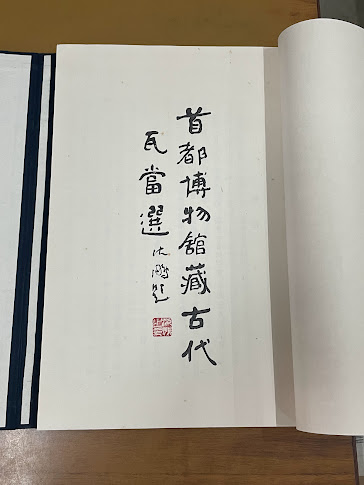 首都博物館藏古代
瓦當選
沈鵬題